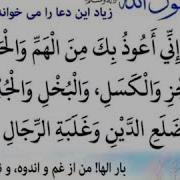 ول الله
زیاد این دعا را می خواند
إِنِّي أَعُوذُ بِكَ مِنَ الْهَمِّ وَالْحَ
جْزِ وَالْكَسَلِ، وَالْبُخْلِ وَالْجُبْ
ضَلَعِ الدَّيْنِ وَغَلَبَةِ الرِّجَالِ
بار الها! من از غم و اندوه، و ن